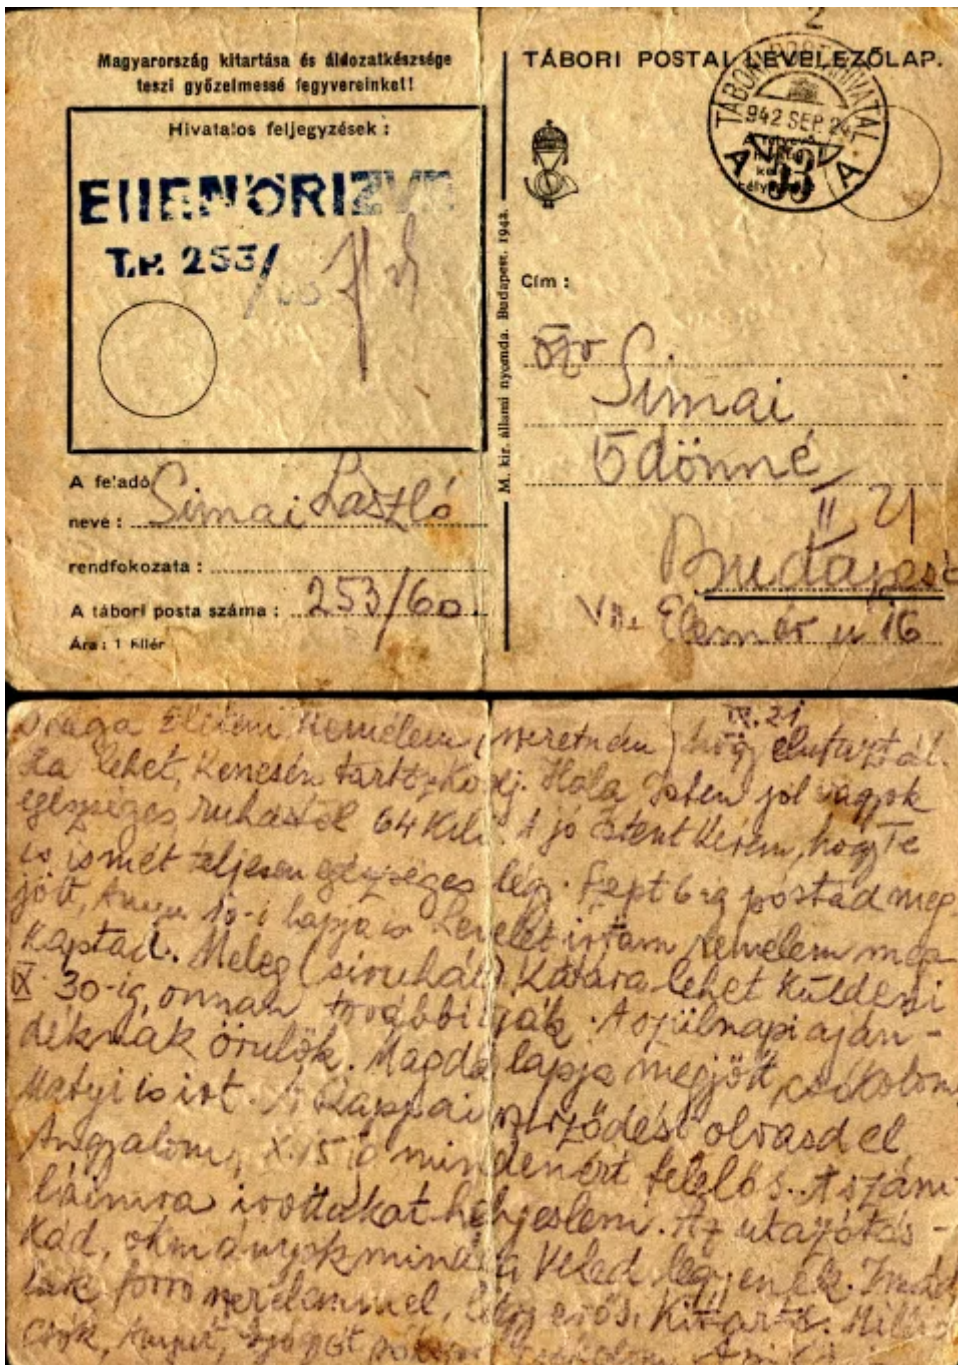 2
Magyarország kitartása és áldozatkészsége
teszi győzelmessé fegyvereinket!
Hivatalos feljegyzések :
ELLENŐRIZVE
T.P. 253/
A feladó
neve : Simai László
rendfokozata :
A tábori posta száma : 253/60.
Ára : 1 fillér
M. kir. állami nyomda. Budapest. 1942.
TÁBORI POSTAI LEVELEZŐLAP.
TÁBORI POSTAHIVATAL
942 SEP. 24
A A
Cím :
özv
Simai
Ödönné
II 21
Budapest
VII. Elemér u 16
IX. 21
Drága Életem Remélem, szeretném, hogy elutaztál.
Ha lehet, Kenesén tartózkodj. Hála Isten jól vagyok
egészséges ruhástól 64 Kiló. A jó Istent kérem, hogy Te
is ismét teljesen egészséges légy. Szept 6-ig postád meg
jött, Anyu 10-i lapja is Levelet irtam remélem meg
kaptad. Meleg ruhát Kátára lehet küldeni
IX. 30-ig, onnan tovább. A szülnapi aján-
déknak örülök. Magda lapja megjött, csókolom
Matyi is irt. A Kappai szerződést olvasd el
Angyalom, X. 15 ig mindenért felelős. A szám
láimra irottakat helyesleni. Az utazótás-
kád, okmányok mind Veled legyenek. Imád
lak forró szerelemmel, légy erős, Kitartó. Millió
csók, Anyut,